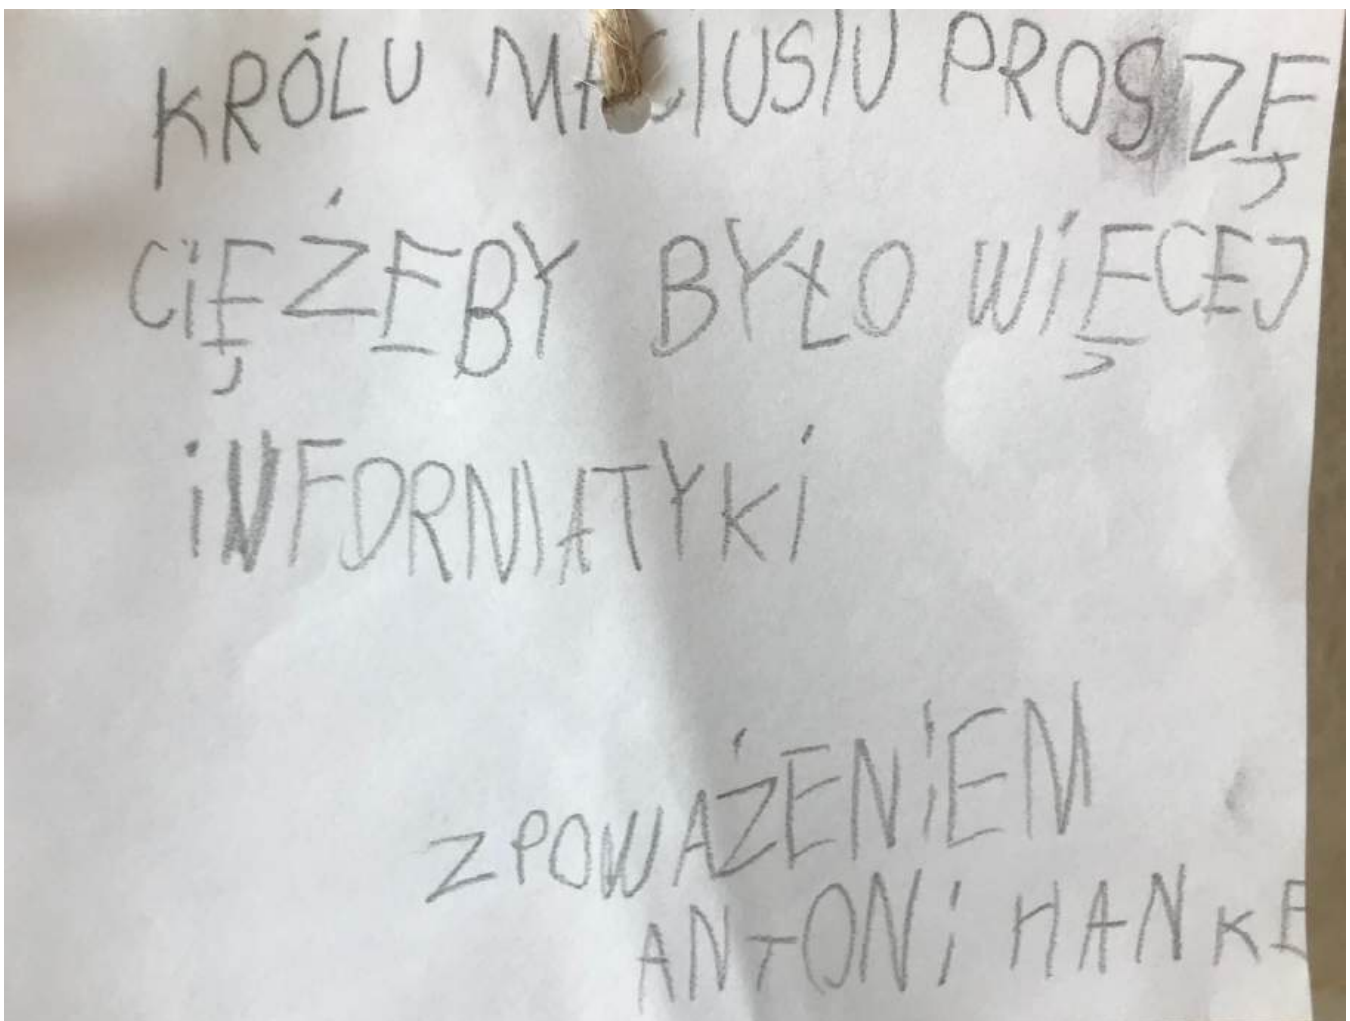 KRÓLU MACIUSIU PROSZĘ
CIĘ ŻEBY BYŁO WIĘCEJ
INFORMATYKI
Z POWAŻENIEM
ANTONI HANKE